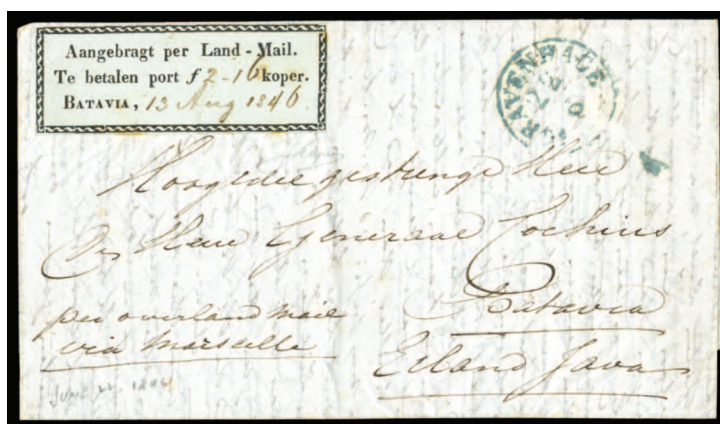 Aangebragt per Land-Mail.
Te betalen port ƒ 2-16 koper.
BATAVIA, 13 Aug 1846.
GRAVENHAGE
Hoog edele gestrenge Heer
De Heer Generaal Cochius
Batavia
Eiland Java
per overland mail
via Marseille